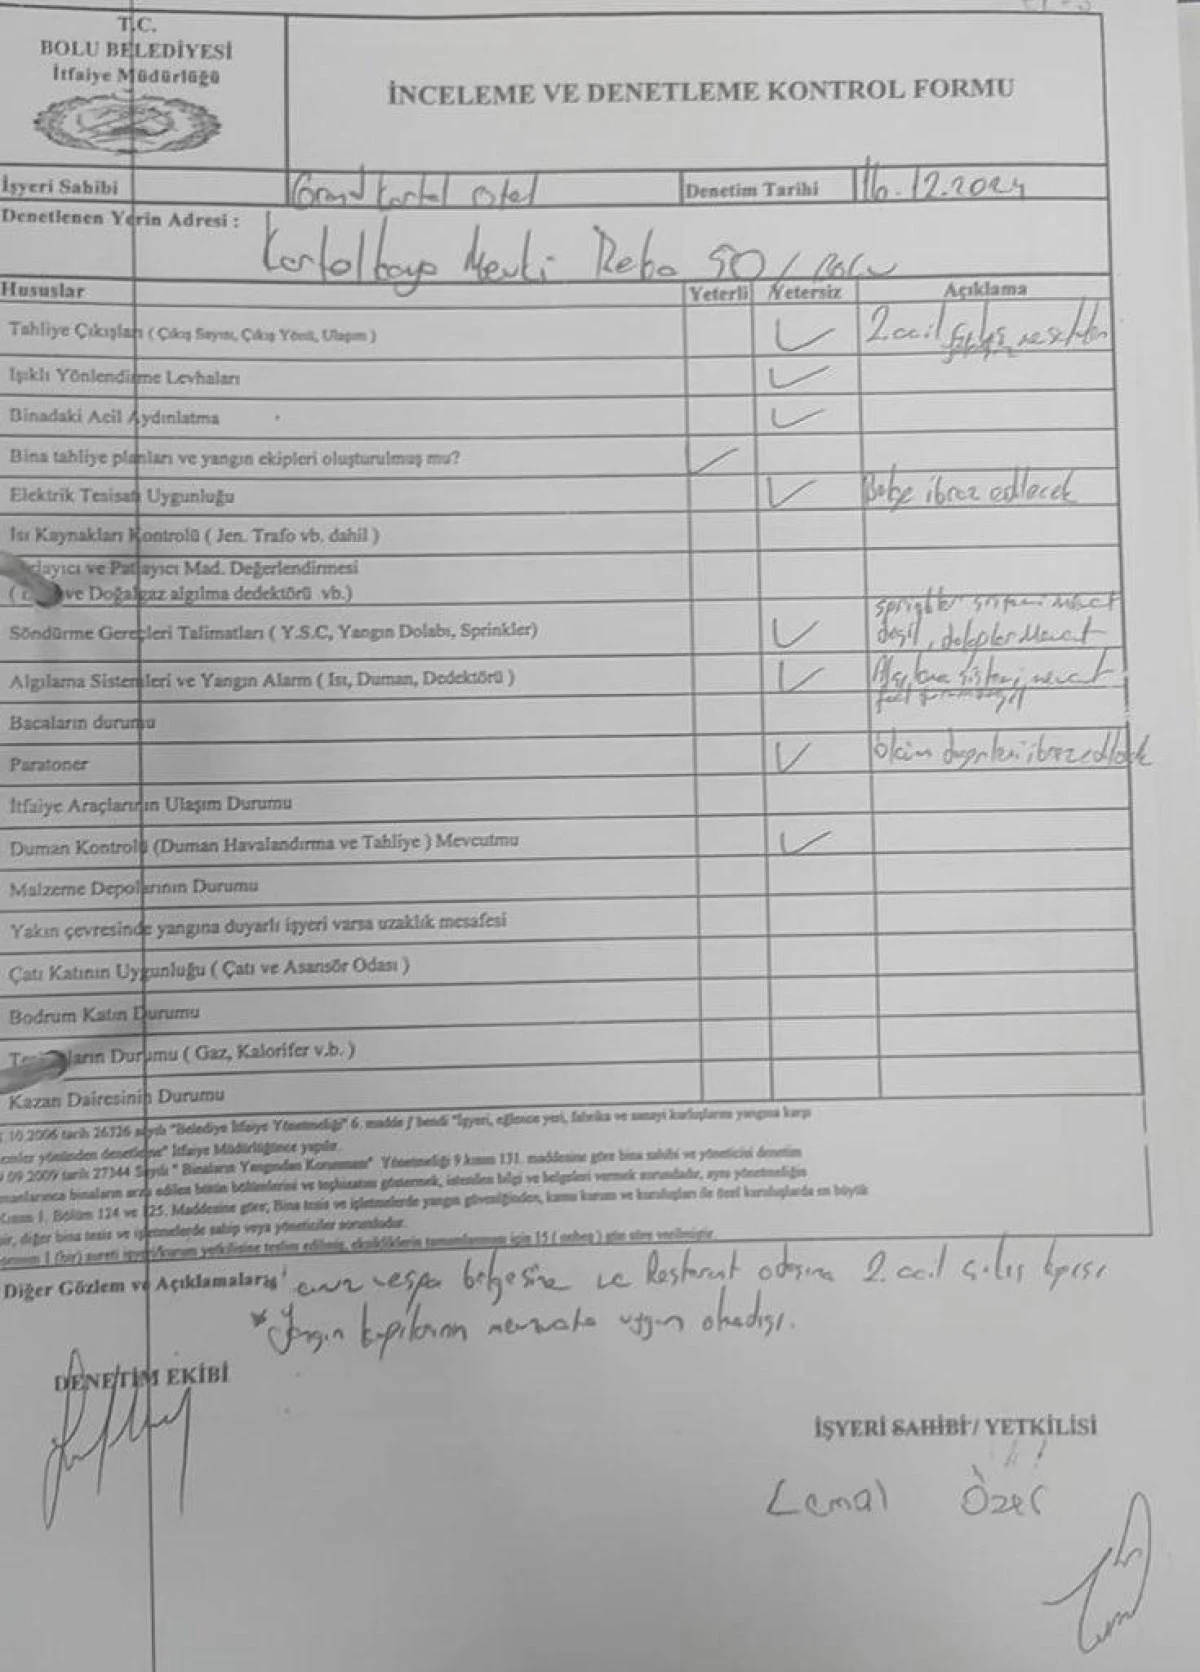 T.C.
BOLU BELEDİYESİ
İtfaiye Müdürlüğü
İNCELEME VE DENETLEME KONTROL FORMU
İşyeri Sahibi Grand Kartal Otel Denetim Tarihi 16.12.2024
Denetlenen Yerin Adresi : Kartalkaya Mevki Bolu
Hususlar Yeterli Yetersiz Açıklama
Tahliye Çıkışları ( Çıkış Sayısı, Çıkış Yönü, Ulaşım ) 2. acil
Işıklı Yönlendirme Levhaları
Binadaki Acil Aydınlatma
Bina tahliye planları ve yangın ekipleri oluşturulmuş mu?
Elektrik Tesisatı Uygunluğu Belge ibraz edilecek
Isı Kaynakları Kontrolü ( Jen. Trafo vb. dahil )
ve Patlayıcı Mad. Değerlendirmesi
ve Doğalgaz algılma dedektörü vb.)
Söndürme Gereçleri Talimatları ( Y.S.C, Yangın Dolabı, Sprinkler) sistemi mevcut
değil, dolaplar mevcut
Algılama Sistemleri ve Yangın Alarm ( Isı, Duman, Dedektörü ) Algılama sistemi mevcut
Bacaların durumu
Paratoner Ölçüm değerleri ibraz edilecek
İtfaiye Araçlarının Ulaşım Durumu
Duman Kontrolü (Duman Havalandırma ve Tahliye ) Mevcutmu
Malzeme Depolarının Durumu
Yakın çevresinde yangına duyarlı işyeri varsa uzaklık mesafesi
Çatı Katının Uygunluğu ( Çatı ve Asansör Odası )
Bodrum Katın Durumu
Durumu ( Gaz, Kalorifer v.b. )
Kazan Dairesinin Durumu
10.2006 tarih 26326 sayılı "Belediye İtfaiye Yönetmeliği" 6. madde f bendi "İşyeri, eğlence yeri, fabrika ve sanayi kuruluşlarını yangına karşı
yönünden denetleme" İtfaiye Müdürlüğünce yapılır.
09 2009 tarih 27344 Sayılı " Binaların Yangından Korunması" Yönetmeliği 9.kısım 131. maddesine göre bina sahibi ve yöneticisi denetim
binaların arzu edilen bütün bölümlerini ve teçhizatını göstermek, istenilen bilgi ve belgeleri vermek zorundadır, aynı yönetmeliğin
Kısım 1. Bölüm 124 ve 125. Maddesine göre; Bina tesis ve işletmelerde yangın güvenliğinden, kamu kurum ve kuruluşları ile özel kuruluşlarda en büyük
diğer bina tesis ve işletmelerde sahip veya yöneticiler sorumludur.
1 (bir) sureti işyeri/kurum yetkilisine teslim edilmiş, eksikliklerin tamamlanması için 15 ( onbeş ) gün süre verilmiştir.
Diğer Gözlem ve Açıklamalar: belgesine ve Restorant odasına 2. acil çıkış kapısı
* Yangın kapılarının mevzuata uygun olmadığı.
DENETİM EKİBİ
İŞYERİ SAHİBİ / YETKİLİSİ
Cemal Özer